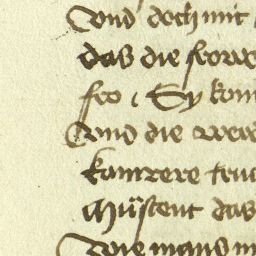 Vnd doch mit
das die frow
fro Sy kom
Vnd die wew
kamrere truc
Müstent das
Wie mand m